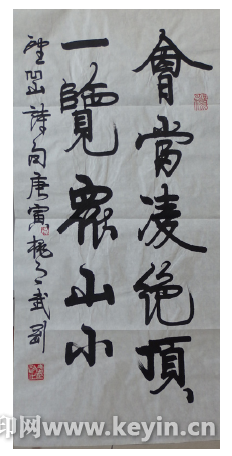 會當凌絕頂
一覽眾山小
望岳詩句庚寅桃月武剛
印网www.keyin.cn